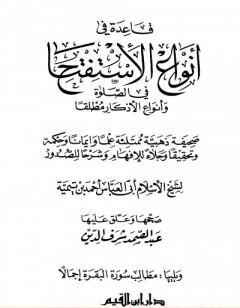 قاعدة في
أنواع الاستفتاح
في الصلوة
وأنواع الأذكار مطلقا
صحيفة ذهبية ممتلئة علما وإيمانا وحكمة
وتحقيقا وجلاء للإفهام وشرحا للصدور
لشيخ الإسلام أبي العباس أحمد بن تيمية
صححها وعلق عليها
عبد الصمد شرف الدين
ويليها : مطالب سورة البقرة إجمالا
دار ابن القيم